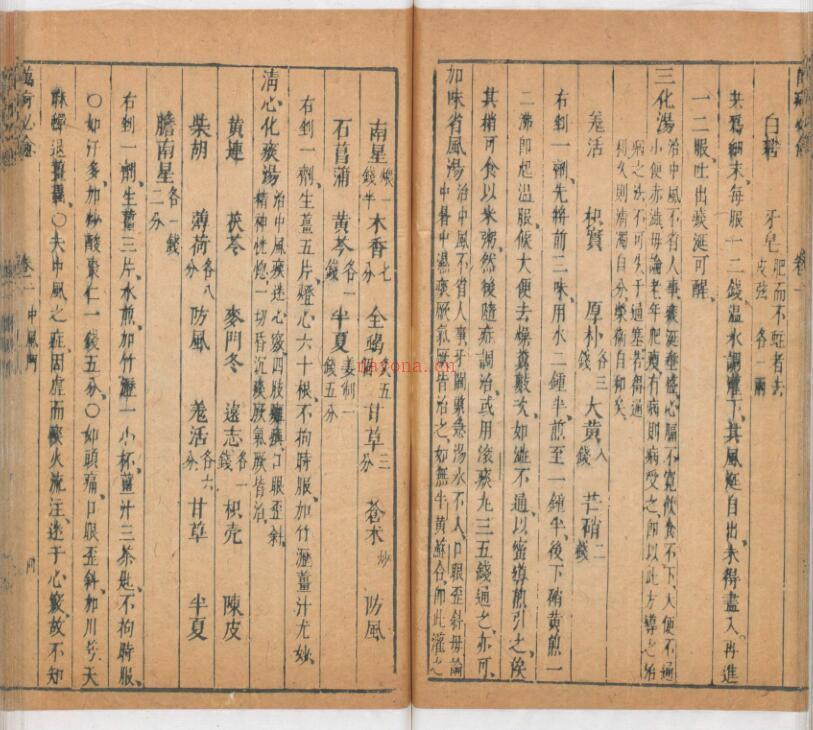 白礬 牙皂肥而不蛀者去皮弦各一兩
夾爲細末每服一二錢温水調灌下其風涎自出未得盡入再進
一二服吐出痰涎可醒
三化湯治中風不省人事痰涎壅盛心膈不寛飲食不下大便不通
小便赤澁毋論老年肥瘦有病則病受之即以此方導之治
病之法不可失于過塞若得通
利久則清濁自分榮衛自和矣
羗活 枳實 厚朴各三錢 大黄八錢 芒硝二錢
右剉一劑先將前二味用水二鍾半煎至一鍾半後下硝黄煎一
二沸即起温服候大便去燥糞數次如澁不通以蜜導煎引之俟
其稍可食以米粥然後隨症調治或用滚痰丸三五錢通之亦可
加味省風湯治中風不省人事牙關緊急湯水不入口眼歪斜毋論
中暑中濕痰厥氣厥皆治之如無牛黄蘇合即此灌之
南星煨一錢半 木香七分 全蝎五個 甘草三分 蒼术炒 防風
石菖蒲 黄芩各一錢 半夏姜制一錢五分
右剉一劑生薑五片燈心六十根不拘時服加竹瀝薑汁尤妙
清心化痰湯治中風痰迷心竅四肢癱瘓口眼歪斜
精神恍惚一切昏沉痰厥氣厥皆治
黄連 茯苓 麥門冬 遠志各一錢 枳壳 陳皮
柴胡 薄荷各八分 防風 羗活各六分 甘草 半夏
膽南星各一錢二分
右剉一劑生薑三片水煎加竹瀝一小杯薑汁三茶匙不拘時服
〇如汗多加炒酸棗仁一錢五分〇如頭痛口眼歪斜加川芎天
麻 〇夫中風之症因虚而痰火流注迷于心竅故不知
萬病必愈 卷一 中風門
nayona.cn